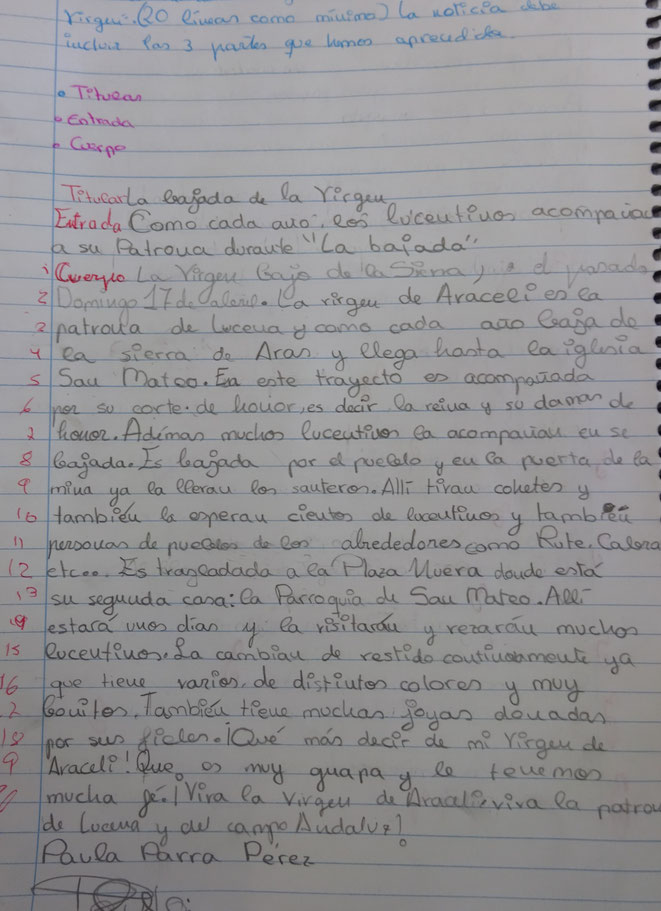 Virgen". (20 líneas como mínimo) La noticia debe
incluir las 3 partes que hemos aprendido.
• Titular
• Entrada
• Cuerpo
Titular La bajada de la Virgen
Entrada Como cada año, los lucentinos acompañan
a su Patrona durante "La bajada".
1 Cuerpo La Virgen bajó de la Sierra, el pasado
2 Domingo 17 de abril. La virgen de Araceli es la
patrona de Lucena y como cada año baja de
4 la sierra de Aras y llega hasta la iglesia
5 San Mateo. En este trayecto es acompañada
6 por su corte de honor, es decir la reina y su damas de
honor. Adémas muchos lucentinos la acompañan en se
8 bajada. Es bajada por el pueblo y en la puerta de la
9 mina ya la llevan los santeros. Allí tiran cohetes y
10 también la esperan cientos de lucentinos y también
11 personas de pueblos de los alrededores como Rute, Cabra
12 etc... Es tragladada a la Plaza Nueva donde está
13 su segunda casa: la Parroquia de San Mateo. Allí
estará unos días y la visitarán y rezarán muchos
15 lucentinos. La cambian de vestido continuamente ya
16 que tiene varios, de distintos colores y muy
bonitos. También tiene muchas joyas donadas
18 por sus fieles. ¡Qué más decir de mi Virgen de
9 Araceli! Que es muy guapa y le tenemos
mucha fé. ¡Viva la Virgen de Araceli, viva la patrona
de Lucena y del campo Andaluz!
Paula Parra Pérez